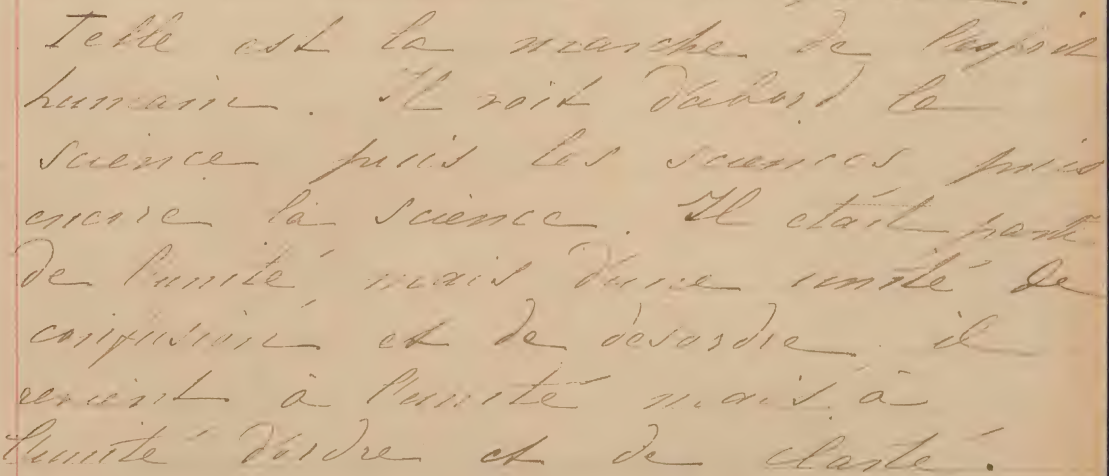 Telle est la marche de l'esprit
humain. Il voit d'abord la
science puis les sciences puis
encore la science. Il était parti
de l'unité mais d'une unité de
confusion et de désordre il
revient à l'unité mais à
l'unité d'ordre et de clarté.